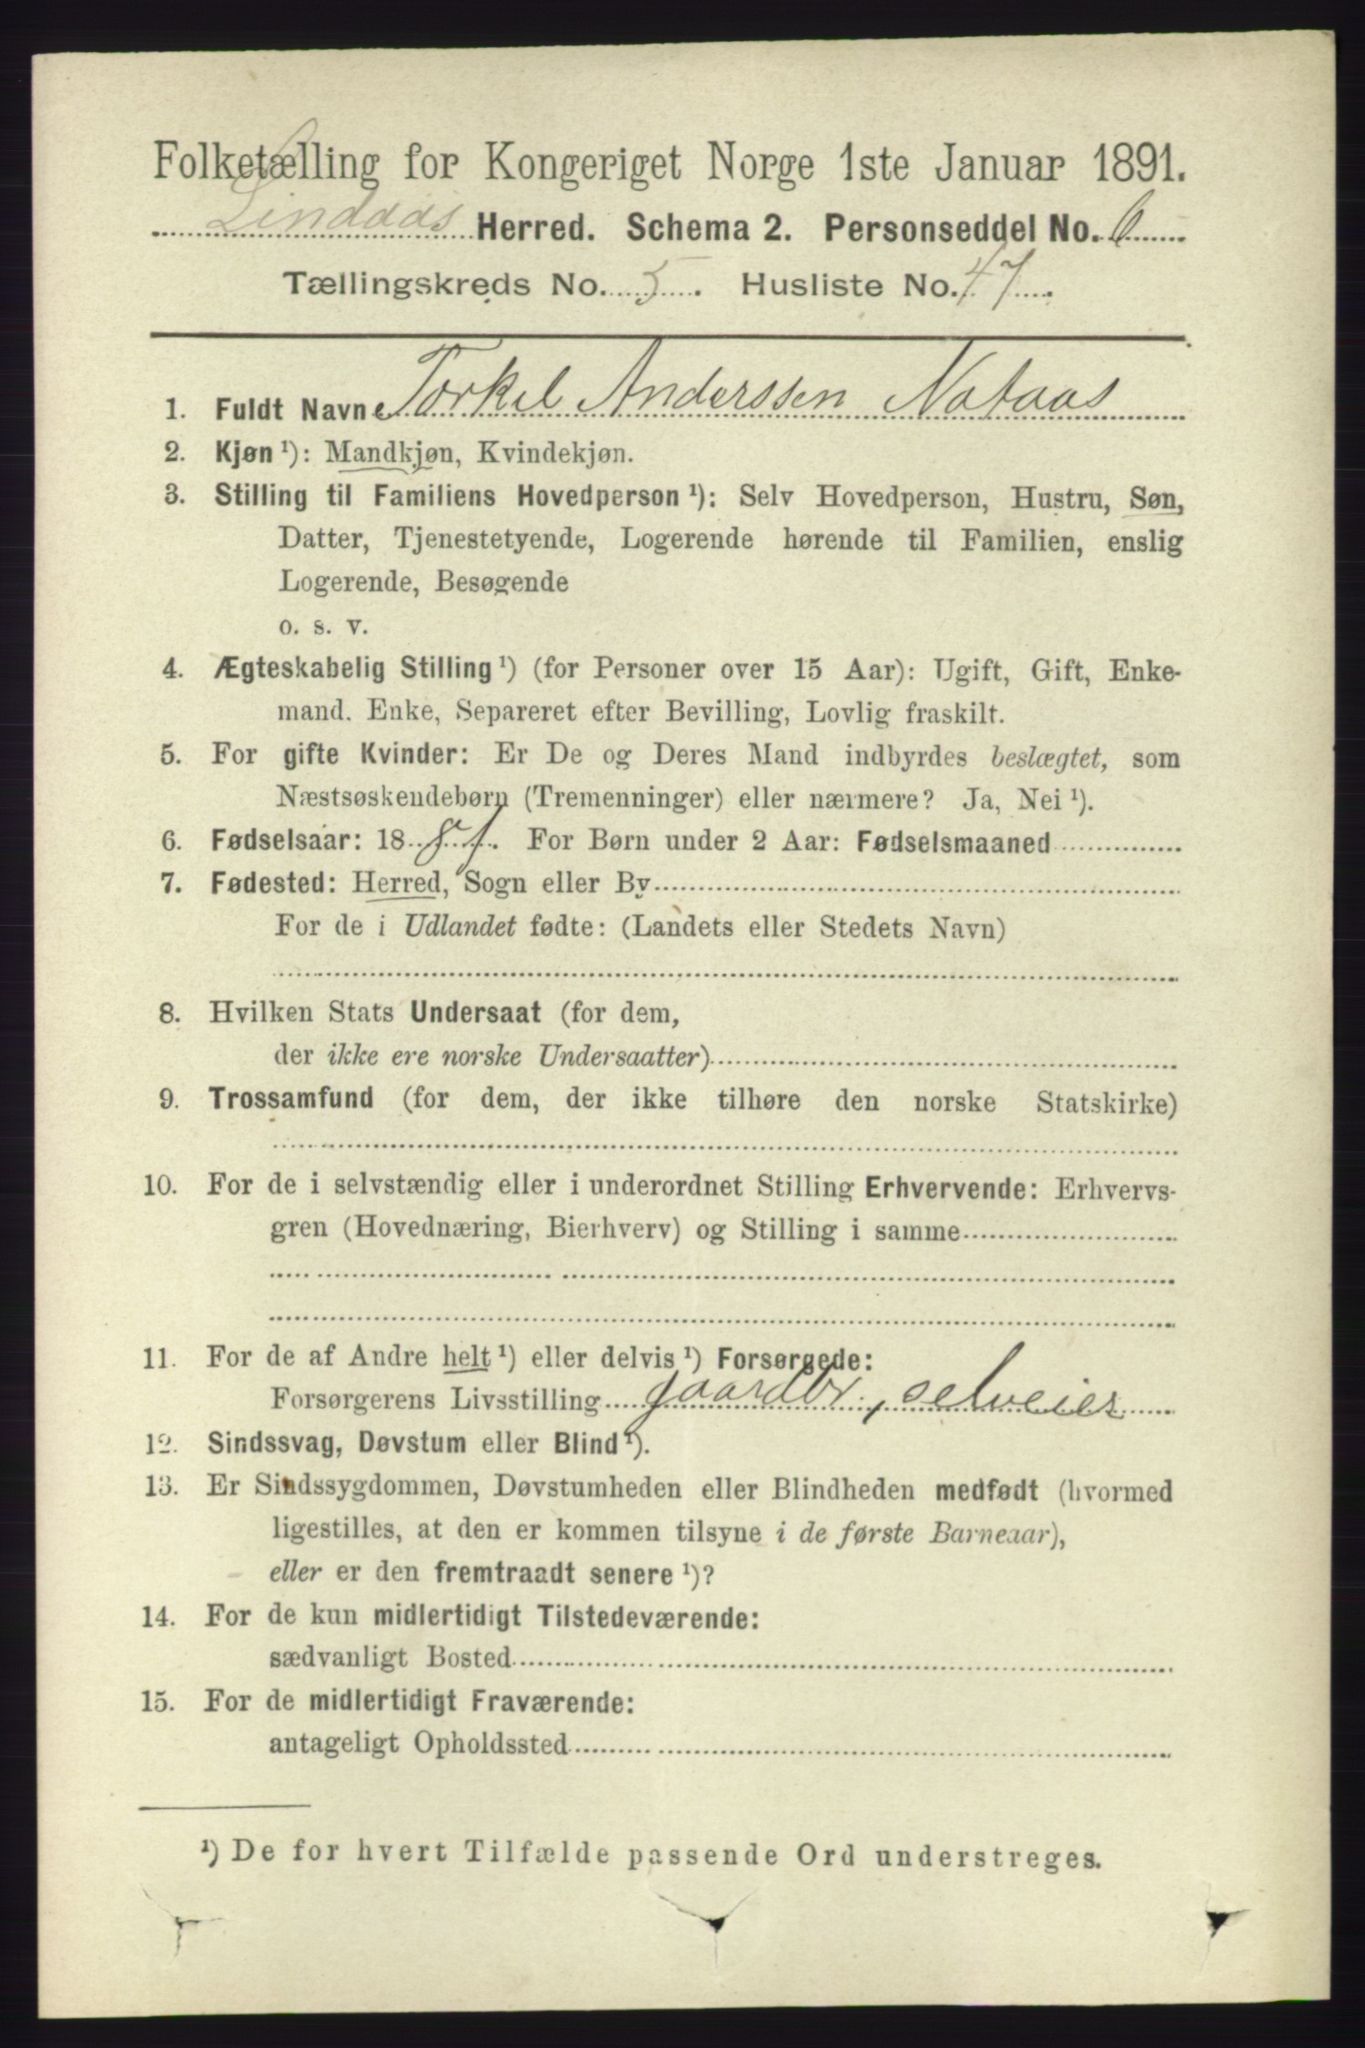 Folketælling for Kongeriget Norge 1ste Januar 1891.
Lindaas Herred. Schema 2. Personseddel No. 6
Tællingskreds No. 5. Husliste No. 47.
1. Fuldt Navn Torkel Anderssen Nataas
2. Kjøn ¹): Mandkjøn, Kvindekjøn.
3. Stilling til Familiens Hovedperson ¹): Selv Hovedperson, Hustru, Søn,
Datter, Tjenestetyende, Logerende hørende til Familien, enslig
Logerende, Besøgende
o. s. v.
4. Ægteskabelig Stilling ¹) (for Personer over 15 Aar): Ugift, Gift, Enke-
mand. Enke, Separeret efter Bevilling, Lovlig fraskilt.
5. For gifte Kvinder: Er De og Deres Mand indbyrdes beslægtet, som
Næstsøskendebørn (Tremenninger) eller nærmere? Ja, Nei ¹).
6. Fødselsaar: 18 For Børn under 2 Aar: Fødselsmaaned
7. Fødested: Herred, Sogn eller By
For de i Udlandet fødte: (Landets eller Stedets Navn)
8. Hvilken Stats Undersaat (for dem,
der ikke ere norske Undersaatter)
9. Trossamfund (for dem, der ikke tilhøre den norske Statskirke)
10. For de i selvstændig eller i underordnet Stilling Erhvervende: Erhvervs-
gren (Hovednæring, Bierhverv) og Stilling i samme
11. For de af Andre helt ¹) eller delvis ¹) Forsørgede:
Forsørgerens Livsstilling gaardbr, selveier
12. Sindssvag, Døvstum eller Blind ¹).
13. Er Sindssygdommen, Døvstumheden eller Blindheden medfødt (hvormed
ligestilles, at den er kommen tilsyne i de første Barneaar),
eller er den fremtraadt senere ¹)?
14. For de kun midlertidigt Tilstedeværende:
sædvanligt Bosted
15. For de midlertidigt Fraværende:
antageligt Opholdssted
¹) De for hvert Tilfælde passende Ord understreges.